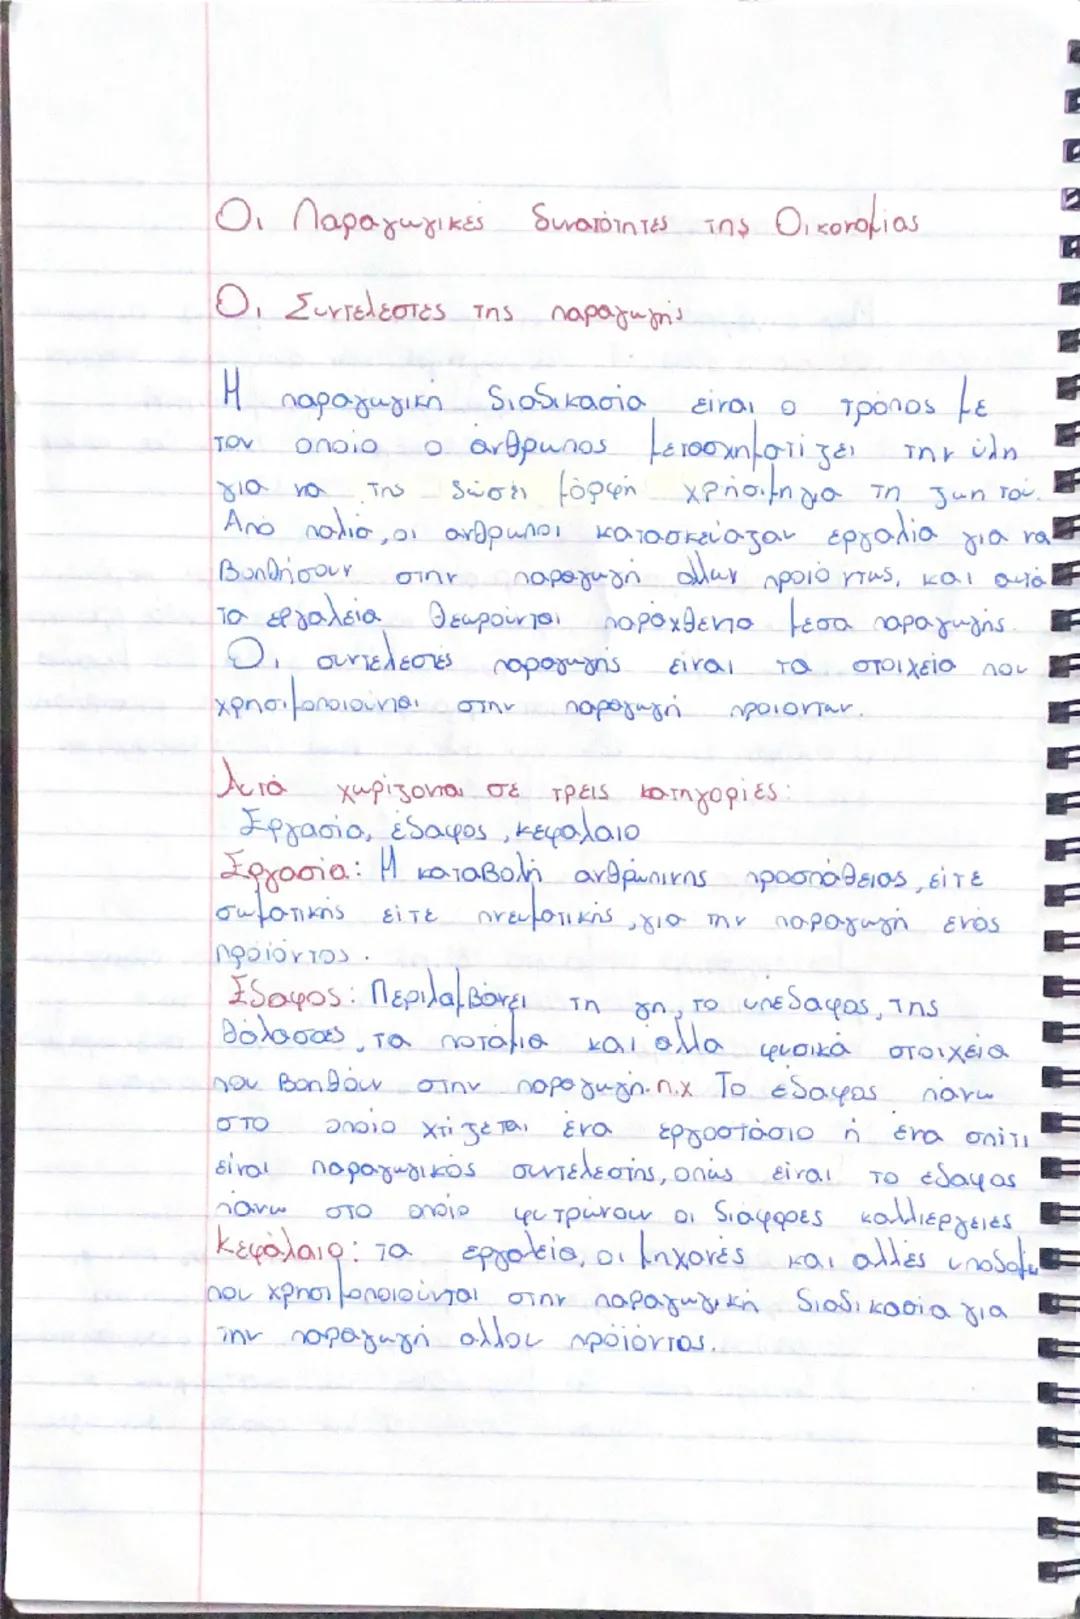 Οι Παραγωγικές δυνατότητες της Οικονομίας
Οι Συντελεστές της παραγωγής
Η παραγωγική διαδικασία είναι ο τρόπος με
τον οποίο ο άνθρωπος μετασχηματίζει την ύλη
για να της δώσει μορφή χρήσιμη για τη ζωή του.
Από παλιά, οι άνθρωποι κατασκεύαζαν εργαλία για να
βοηθήσουν στην παραγωγή άλλων προιόντως, και αυτά
τα εργαλεία θεωρούνται παραχθέντα μέσα παραγωγής.
Οι συντελεστές παραγωγής είναι τα στοιχεία που
χρησιμοποιούνται στην παραγωγή προιόνταν.
Αυτά χωρίζονται σε τρεις κατηγορίες:
Εργασία, έδαφος, κεφάλαιο
Εργασία: Η καταβολή ανθρώπινης προσπάθειας, είτε
σωματικής είτε πνευματικής, για την παραγωγή ενός
προϊόντος.
Έδαφος: Περιλαμβάνει τη γη, το υπέδαφος, της
θάλασσες, τα ποτάμια και άλλα φυσικά στοιχεία
που βοηθούν στην παραγωγή. π.χ Το έδαφος πάνω
στο οποίο χτίζεται ένα εργοστάσιο ή ένα σπίτι
είναι παραγωγικός συντελεστής, όπως είναι το έδαφος
πάνω στο οποίο φυτρώνουν οι διάφορες καλλιέργειες
Κεφάλαιο: τα εργαλεία, οι μηχανές και άλλες
που χρησιμοποιούνται στην παραγωγική διαδικασία για
την παραγωγή άλλου προϊόντος.